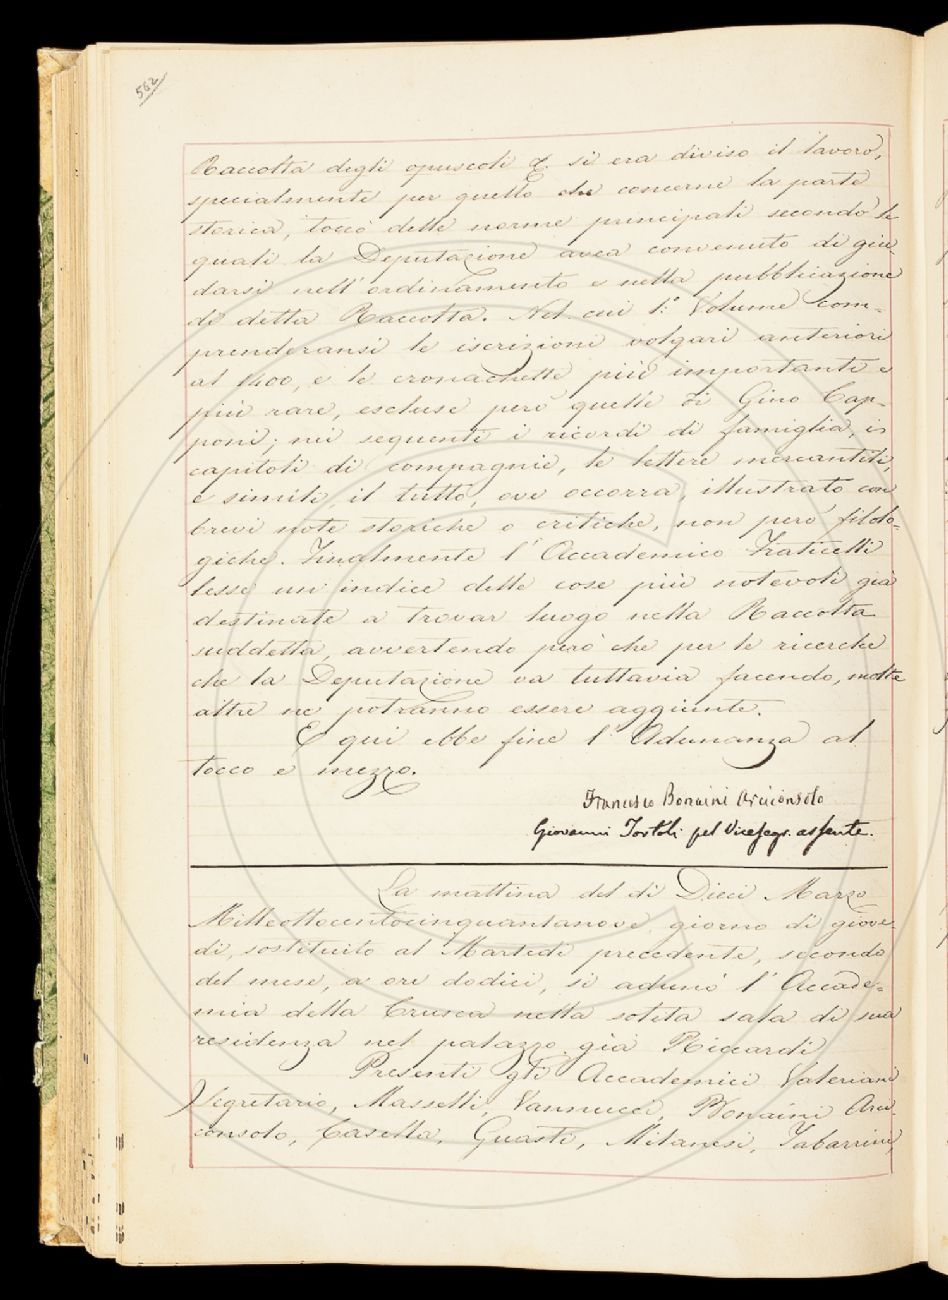 562
Raccolta degli opuscoli &. si era diviso il lavoro,
specialmente per quello che concerne la parte
storica, toccò delle norme principali secondo le
quali la Deputazione avea convenuto di gui-
darsi nell'ordinamento e nella pubblicazione
di detta Raccolta. Nel cui 1.° Volume com-
prenderansi le iscrizioni volgari anteriori
al 1400, e le cronachette più importanti e
più rare, escluse però quelle di Gino Cap-
poni; nei seguenti i ricordi di famiglia, i
capitoli di compagnie, le lettere mercantili,
e simili, il tutto, ove occorra, illustrato con
brevi note storiche o critiche, non però filolo-
giche. Finalmente l'Accademico Fraticelli
lesse un'indice delle cose più notevoli già
destinate a trovar luogo nella Raccolta
suddetta, avvertendo però che per le ricerche
che la Deputazione va tuttavia facendo, molte
altre ne potranno essere aggiunte.
E qui ebbe fine l'Adunanza al
tocco e mezzo.
Francesco Bonaini Arciconsolo
Giovanni Tortoli pel Vicesegr. assente.
La mattina del dì Dieci Marzo
Milleottocentocinquantanove, giorno di giove-
dì, sostituito al Martedì precedente, secondo
del mese, a ore dodici, si adunò l'Accade-
mia della Crusca nella solita sala di sua
residenza nel palazzo già Riccardi
Presenti gli Accademici Valeriani
Segretario, Masselli, Vannucci, Bonaini Arci-
consolo, Casella, Guasti, Milanesi, Tabarrini,